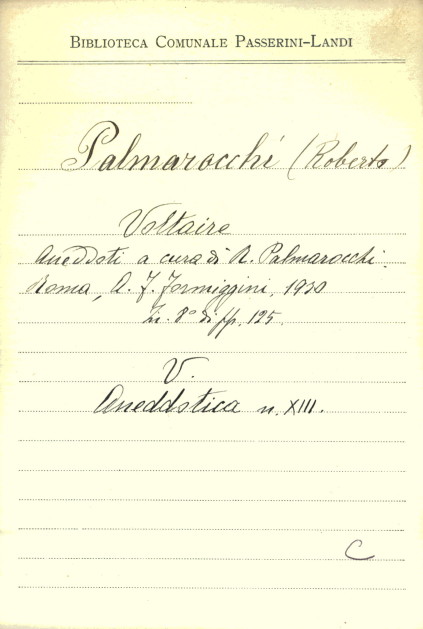 BIBLIOTECA COMUNALE PASSERINI-LANDI
Palmarocchi (Roberto)
Voltaire
Aneddoti a cura di R. Palmarocchi.
Roma, A. F. Formiggini, 1930
In 8° di pp. 125.
V.
Aneddotica n. XIII.
C